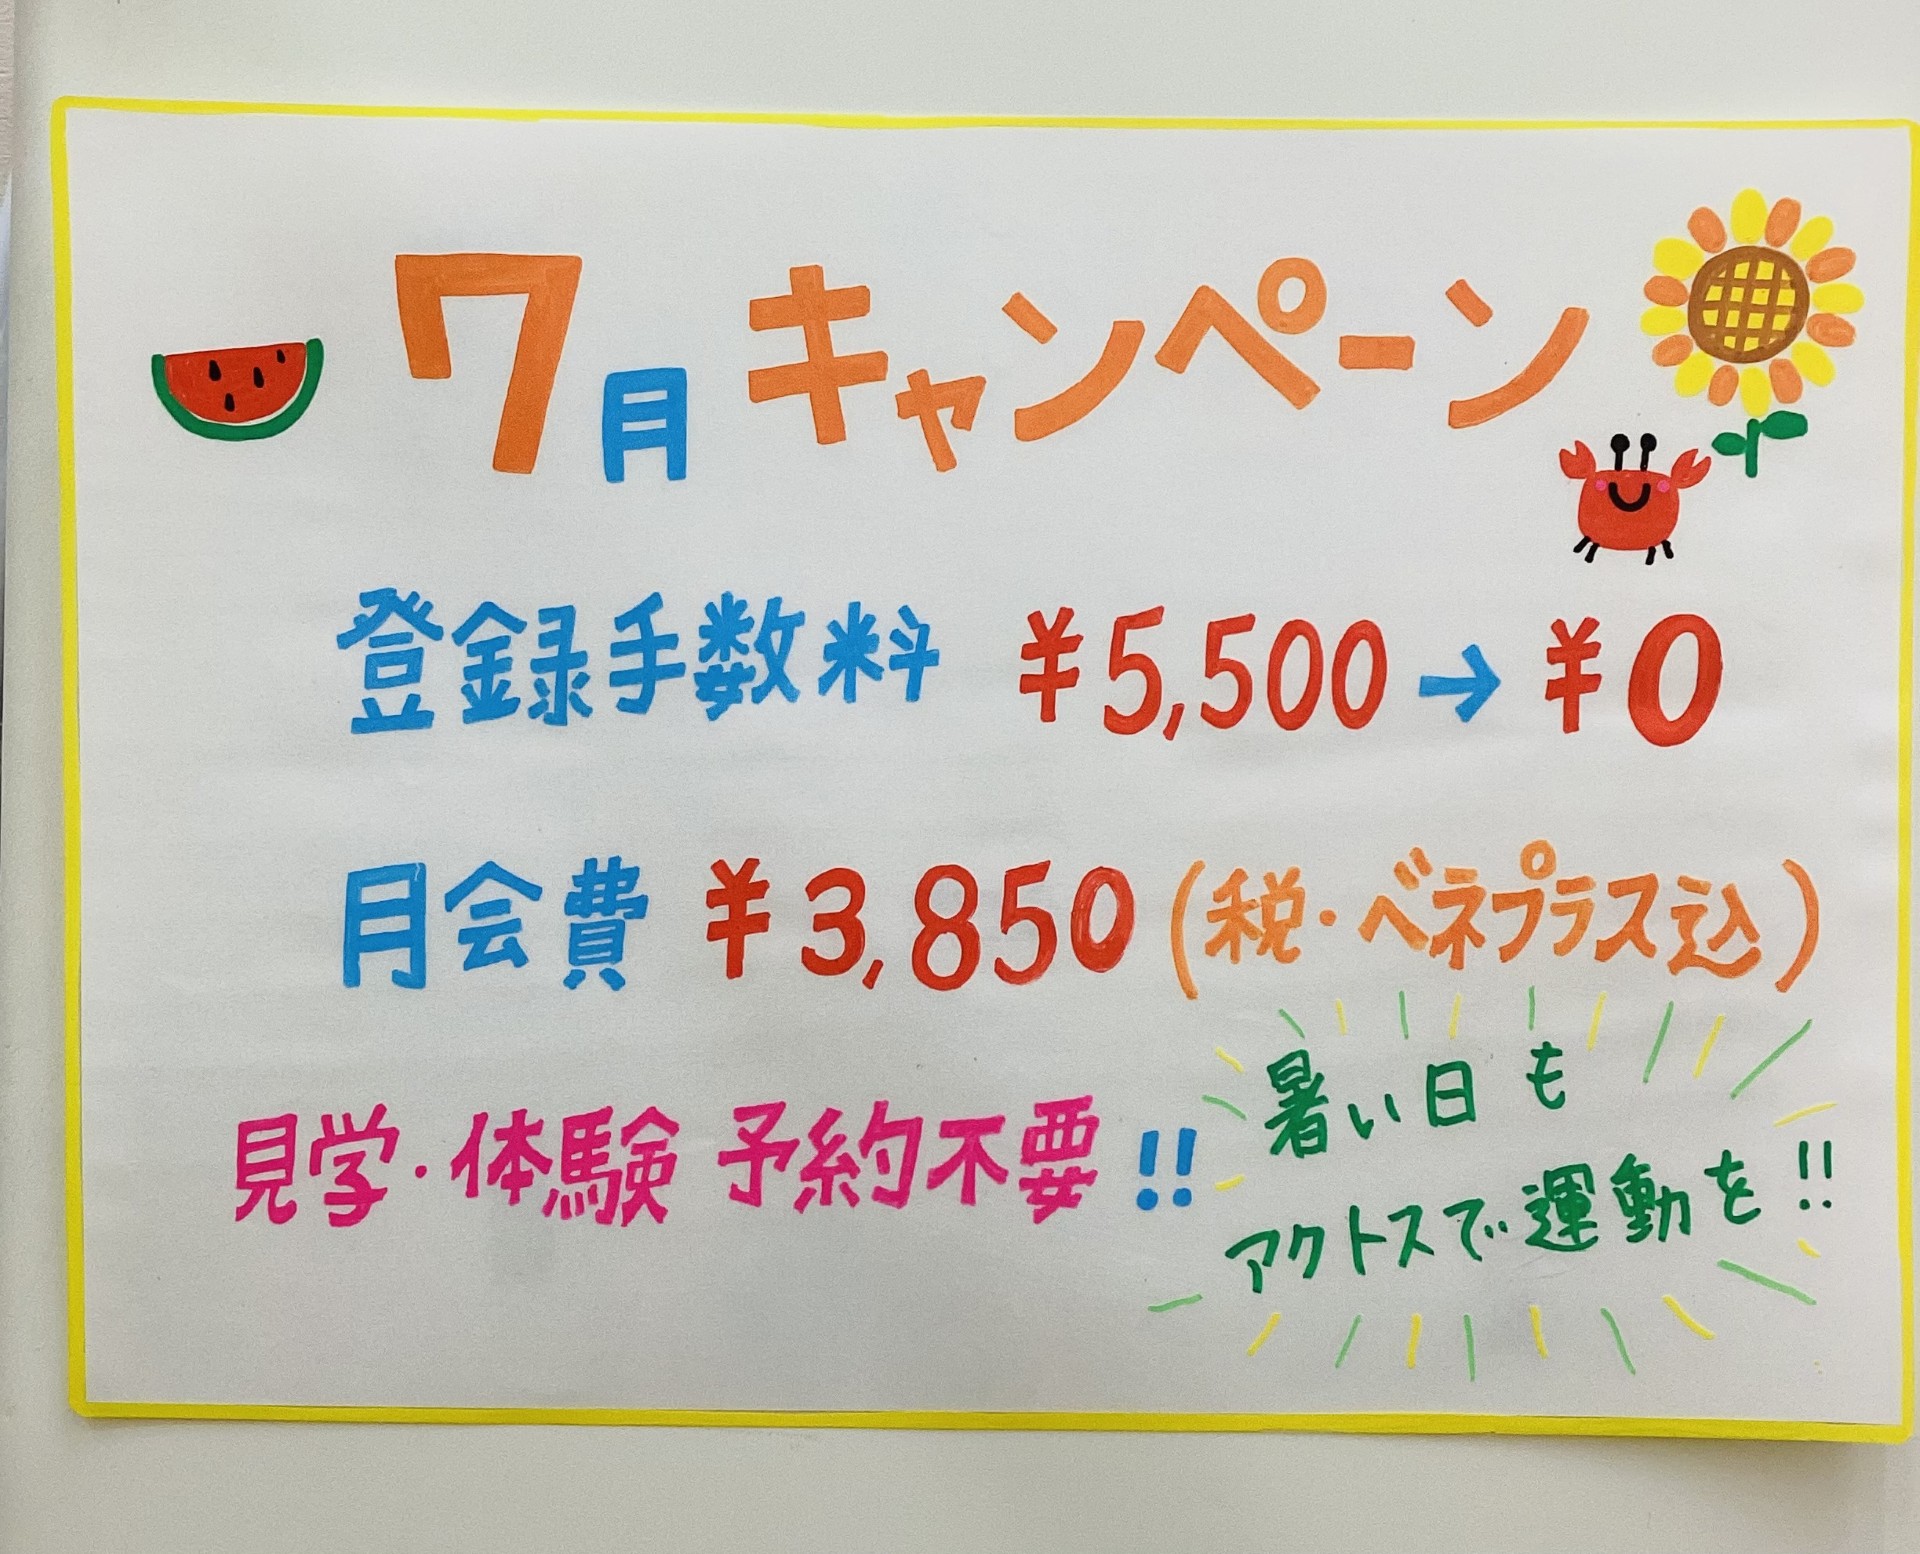 7月キャンペーン
登録手数料 ¥5,500→¥0
月会費 ¥3,850(税・ベネプラス込)
見学・体験 予約不要!!
暑い日も
アクトスで運動を!!